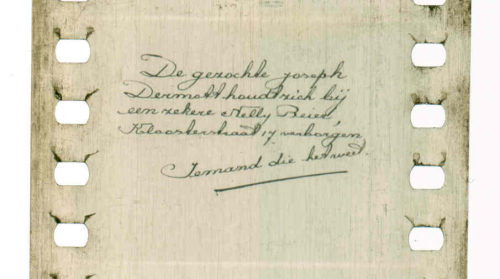 De gezochte Joseph
Dermott houdt zich bij
een zekere Nelly Beier,
Kloosterstraat 17 verborgen
Iemand die het weet.